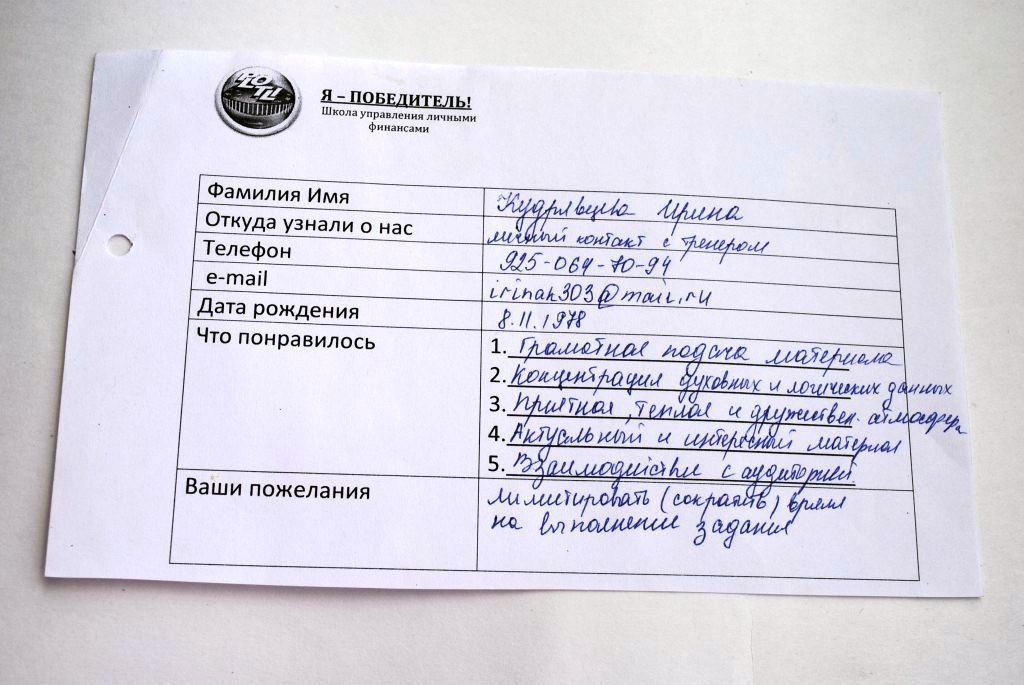 РОСТЫ
Я – ПОБЕДИТЕЛЬ!
Школа управления личными
финансами
Фамилия Имя Кудрявцева Ирина
Откуда узнали о нас личный контакт с тренером
Телефон 925-064-70-94
e-mail irinak303@mail.ru
Дата рождения 8.11.1978
Что понравилось 1. Грамотная подача материала
2. Концентрация духовных и логических данных
3. Приятная, теплая и дружествен. атмосфера
4. Актуальный и интересный материал
5. Взаимодействие с аудиторией
Ваши пожелания лимитировать (сократить) время
на выполнение задания